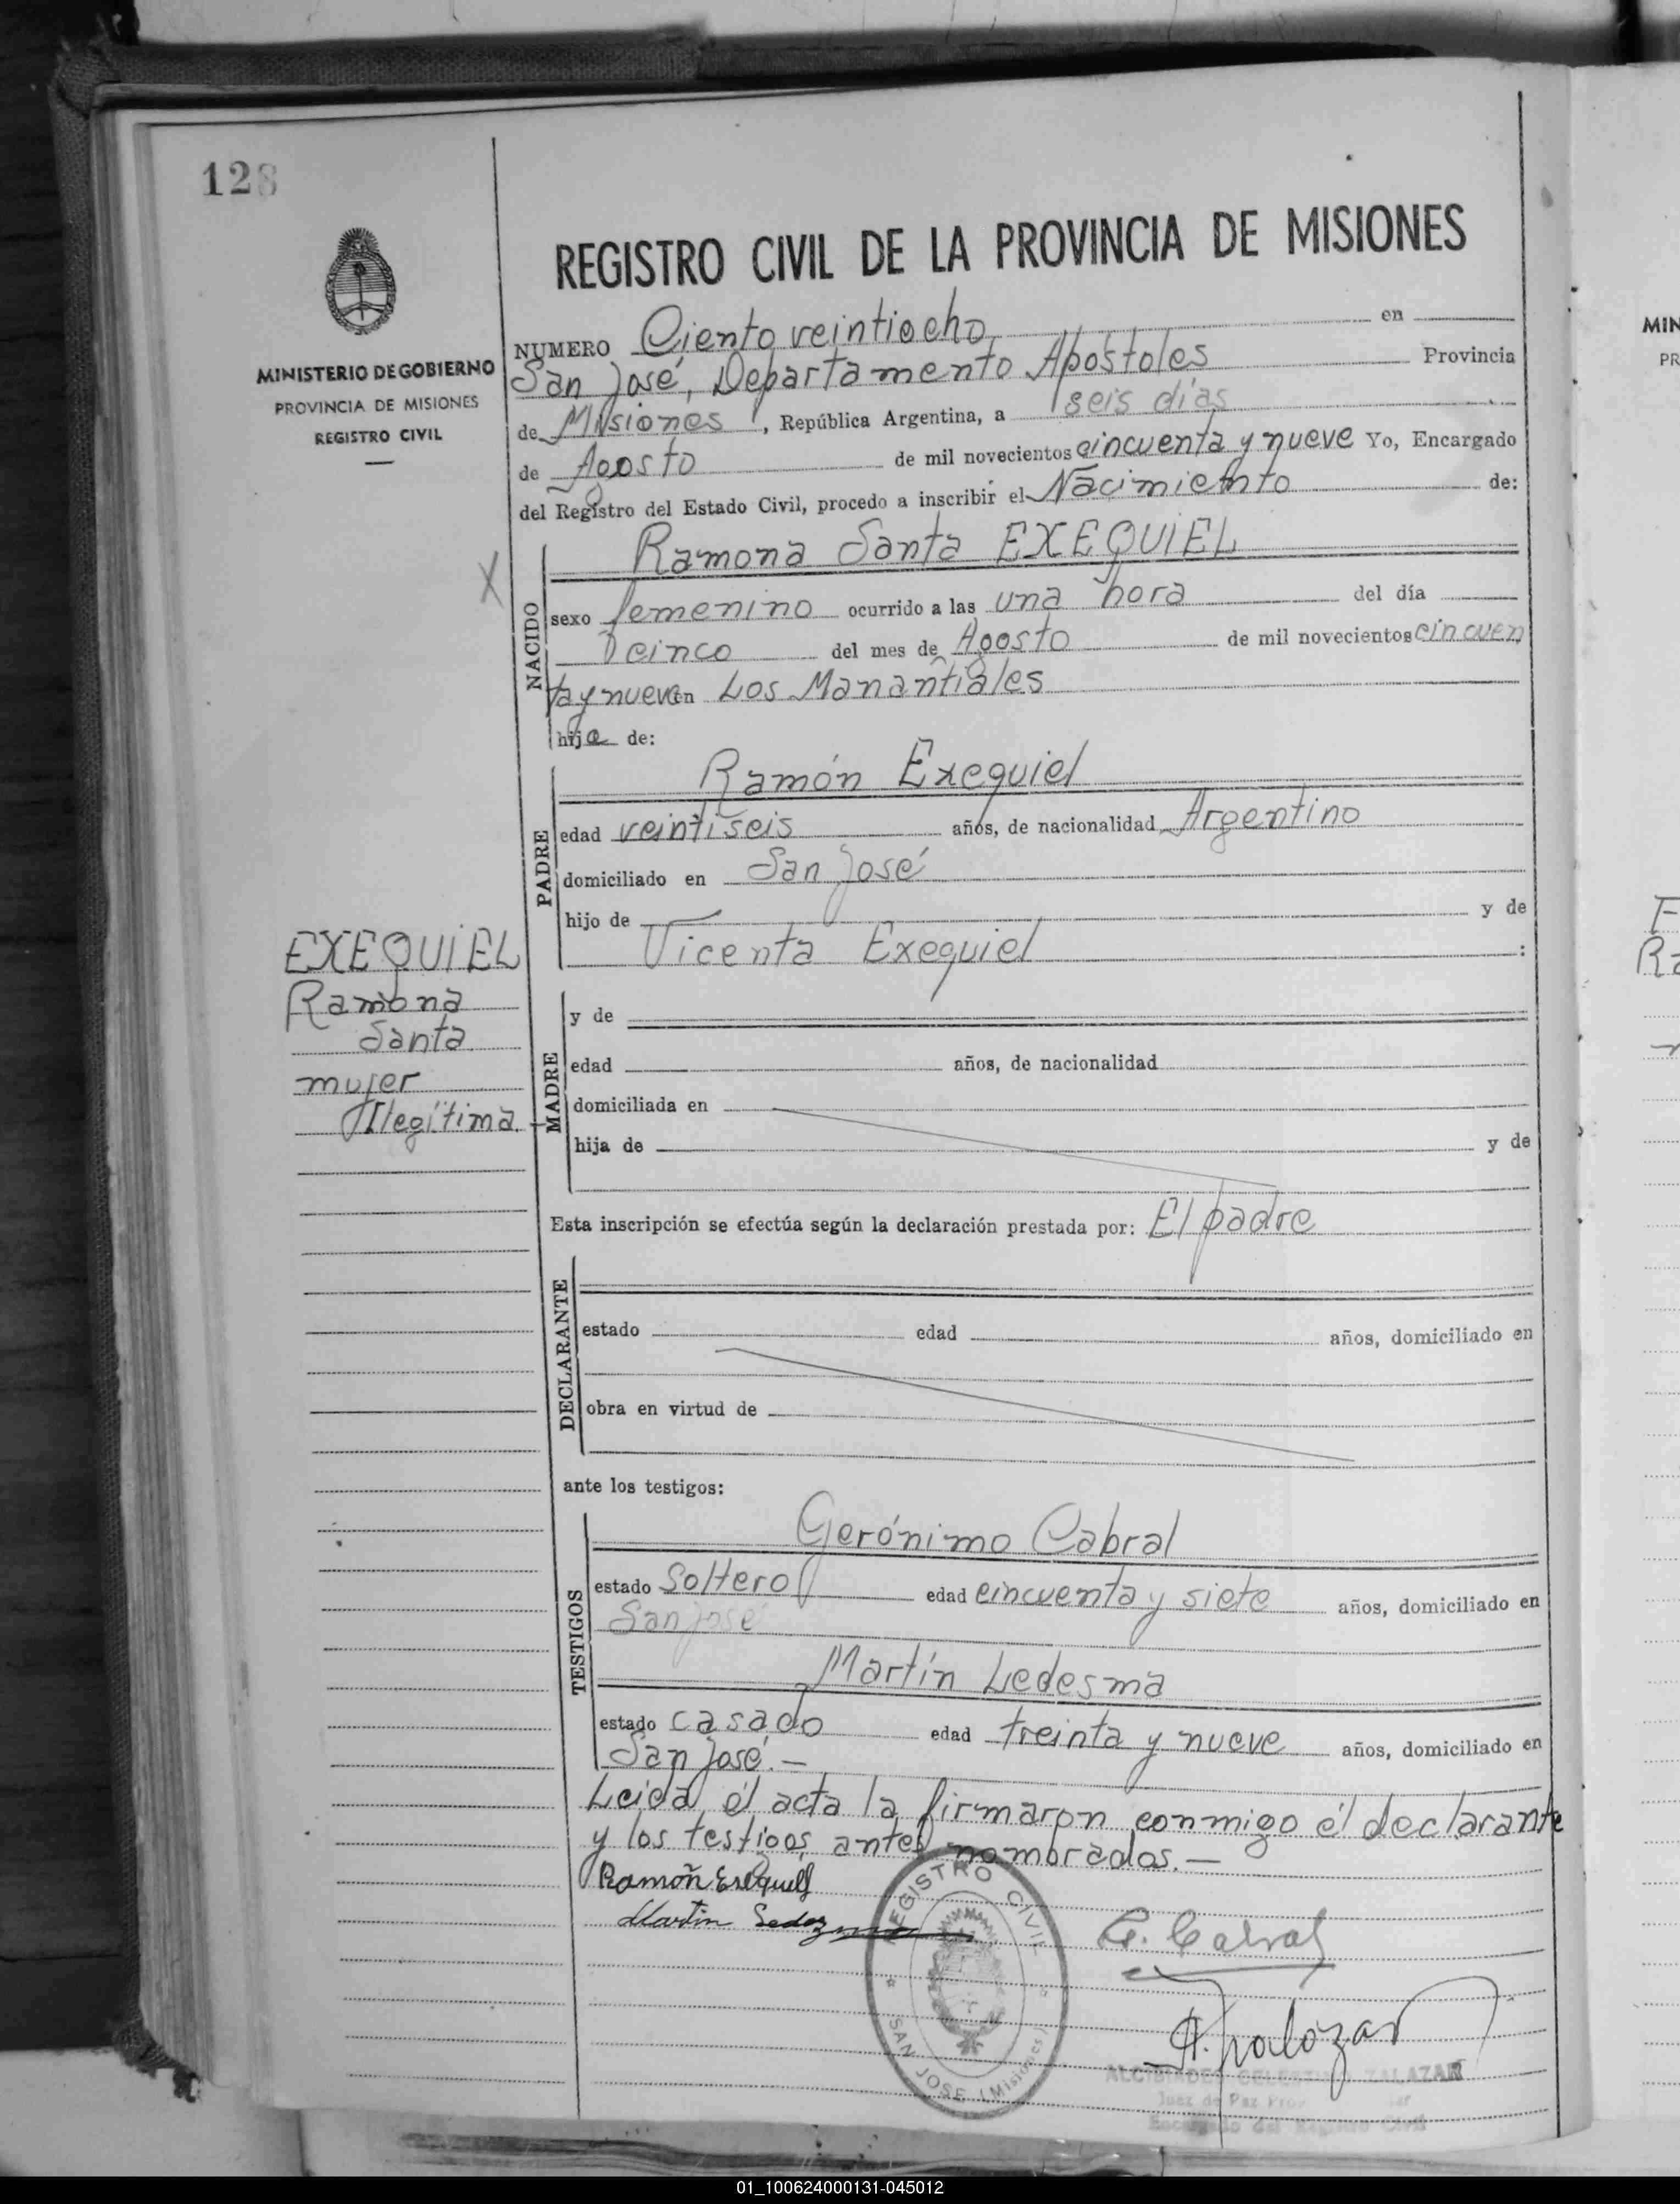 128
MINISTERIO DE GOBIERNO
PROVINCIA DE MISIONES
REGISTRO CIVIL
REGISTRO CIVIL DE LA PROVINCIA DE MISIONES
NUMERO Ciento veintiocho en
San José, Departamento Apóstoles Provincia
de Misiones, República Argentina, a seis días
de Agosto de mil novecientos cincuenta y nueve Yo, Encargado
del Registro del Estado Civil, procedo a inscribir el Nacimiento de:
X
NACIDO
Ramona Santa EXEQUIEL
sexo femenino ocurrido a las una hora del día
cinco del mes de Agosto de mil novecientos cincuen
ta y nueve en Los Manantiales
hija de:
PADRE
Ramón Exequiel
edad veintiseis años, de nacionalidad Argentino
domiciliado en San José
hijo de y de
Vicenta Exequiel :
EXEQUIEL
Ramona
Santa
mujer
Ilegítima.
MADRE
y de
edad años, de nacionalidad
domiciliada en
hija de y de
Esta inscripción se efectúa según la declaración prestada por: El padre
DECLARANTE
estado edad años, domiciliado en
obra en virtud de
ante los testigos:
TESTIGOS
Gerónimo Cabral
estado Soltero edad cincuenta y siete años, domiciliado en
San José
Martín Ledesma
estado casado edad treinta y nueve años, domiciliado en
San José.-
Leida él acta la firmaron conmigo él declarante
y los testigos antes nombrados.-
Ramoñ
Martin
REGISTRO CIVIL
SAN JOSE (Misiones)
G. Cabral
ALCIBIADES CELESTINO ZALAZAR
Juez de Paz
Encargado del Registro Civil
MIN
PR
F
Ra
01_100624000131-045012